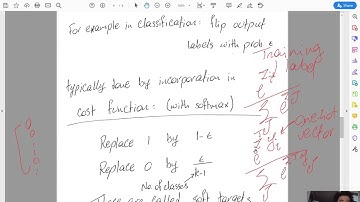 For example in classification: flip output
labels with prob ε
typically done by incorporation in
cost function: (with softmax)
Replace 1 by 1-ε
Replace 0 by ε/k-1
No. of classes
These are called soft targets
Training
label
one hot
vector